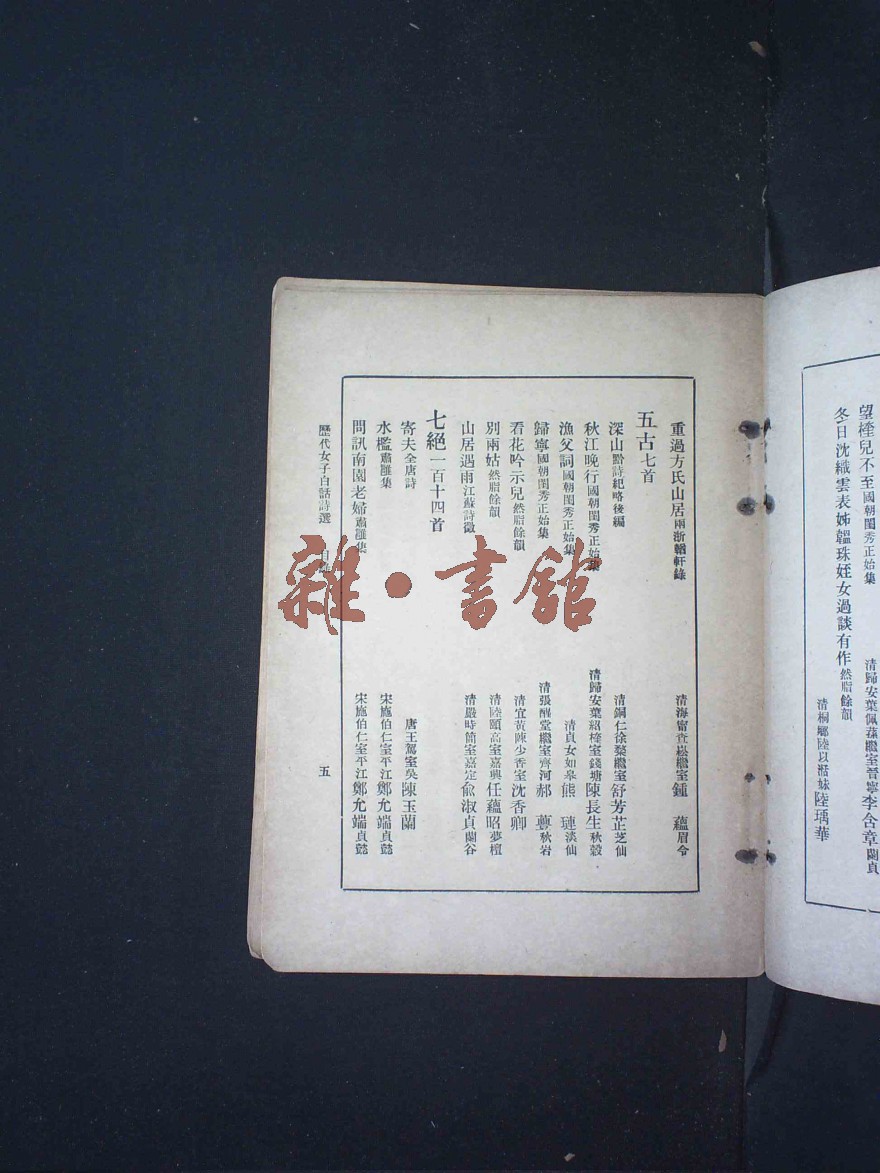 望樓兒不至國朝閨秀正始集　清歸安葉佩蓀繼室晉寧李含章蘭貞
冬日沈織雲表姊韞珠姪女過談有作然脂餘韻　清桐鄉陸以湉妹陸瑀華
重過方氏山居兩浙輶軒錄　清海甯查崧繼室鍾　蘊眉令
五古七首
深山黔詩紀略後編　清銅仁徐棻繼室舒芳芷芝仙
秋江晚行國朝閨秀正始集　清歸安葉紹楏室錢塘陳長生秋穀
漁父詞國朝閨秀正始集　清貞女如皋熊　璉淡仙
歸寧國朝閨秀正始集　清張醒堂繼室齊河郝　䕒秋岩
看花吟示兒然脂餘韻　清宜黃陳少香室沈香卿
別兩姑然脂餘韻　清陸頤高室嘉興任蘊昭夢檀
山居遇雨江蘇詩徵　清嚴時簡室嘉定俞淑貞蘭谷
七絕一百十四首
寄夫全唐詩　唐王駕室吳陳玉蘭
水檻肅雝集　宋施伯仁室平江鄭允端貞懿
問訊南園老婦肅雝集　宋施伯仁室平江鄭允端貞懿
歷代女子白話詩選　目錄　五
雜·書館